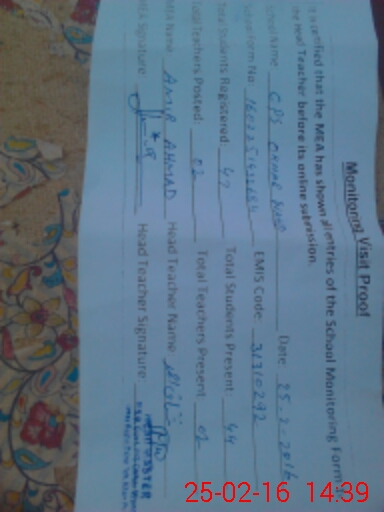 Monitoring Visit Proof
It is certified that the MEA has shown all entries of the School Monitoring Form to
the Head Teacher before its online submission.
School Name GPS Date 25-2-2016
School Form No EMIS Code 31310292
Total Students Registered: 47 Total Students Present 44
Total Teachers Posted: 02 Total Teachers Present 02
MEA Name AMIR AHMAD Head Teacher Name
MEA Signature: Head Teacher Signature:
25-02-16 14:39